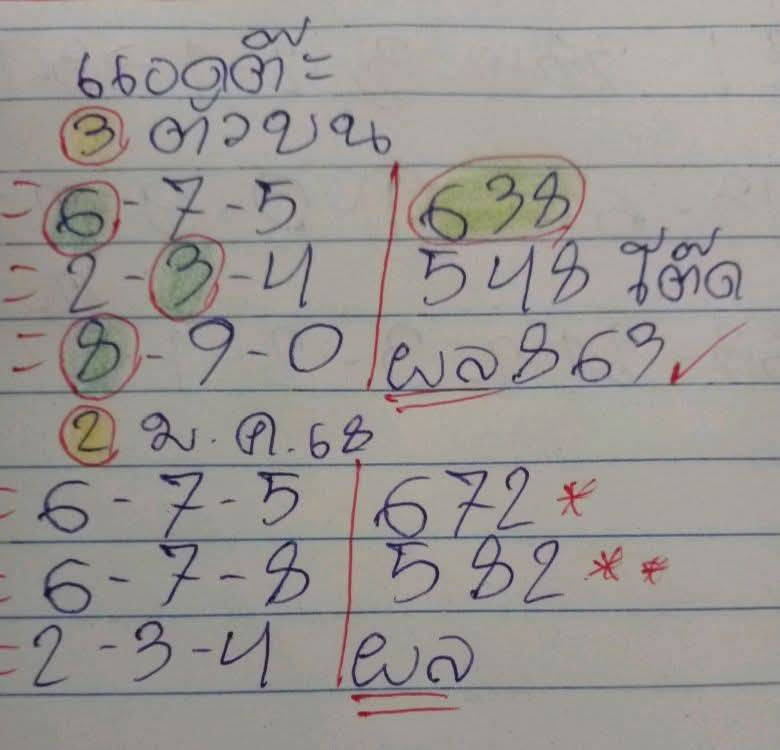 แอดต๊ะ
3 ตัวบน
= 6 - 7 - 5 | 638
= 2 - 3 - 4 | 548 โต๊ด
= 8 - 9 - 0 | ผล 863 ✓
2 ม.ค.68
= 6 - 7 - 5 | 672 *
= 6 - 7 - 8 | 582 * *
= 2 - 3 - 4 | ผล